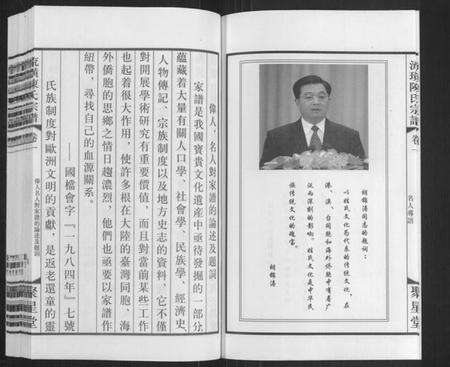 濱陳氏宗譜
卷一
名人專語
聚星堂
胡錦濤同志的題詞：
以姓氏文化為代表的傳統文化，在
港、澳、台同胞和海外僑胞中有著廣
泛而深刻的影響。姓氏文化是中華民
族傳統文化的瑰寶。
胡錦濤
偉人、名人對家譜的論述及題詞
家譜是我國寶貴文化遺產中亟待發掘的一部分，
蘊藏着大量有關人口學、社會學、民族學、經濟史、
人物傳記、宗族制度以及地方史志的資料，它不僅
對開展學術研究有重要價值，而且對當前某些工作
也起着很大作用，使許多根在大陸的臺灣同胞、海
外僑胞的思鄉之情日趨濃烈，他們也亟要以家譜作
紐帶，尋找自己的血源關系。
——國檔會字『一九八四年』七號
氏族制度對歐洲文明的貢獻，是返老還童的靈
陳氏宗譜
卷一
偉人名人對家譜的論述及題詞
聚星堂